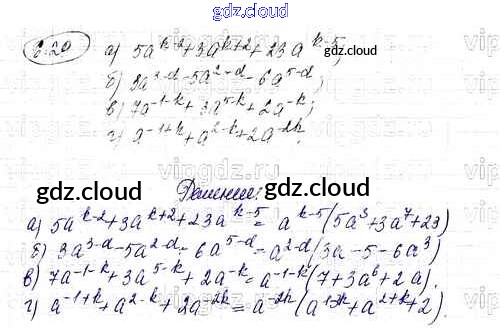 gdz.cloud
6.20 а) 5a^{k-2}+3a^{k+2}+23a^{k-5};
б) 3a^{3-d}-5a^{2-d}-6a^{5-d};
в) 7a^{-1-k}+3a^{5-k}+2a^{-k};
г) a^{-1+k}+a^{2-k}+2a^{-2k}.
gdz.cloud gdz.cloud
Решение:
а) 5a^{k-2}+3a^{k+2}+23a^{k-5}=a^{k-5}(5a^3+3a^7+23)
б) 3a^{3-d}-5a^{2-d}-6a^{5-d}=a^{2-d}(3a-5-6a^3)
в) 7a^{-1-k}+3a^{5-k}+2a^{-k}=a^{-1-k}(7+3a^6+2a).
г) a^{-1+k}+a^{2-k}+2a^{-2k}=a^{-2k}(+a^{2+k}+2).
gdz.cloud gdz.cloud